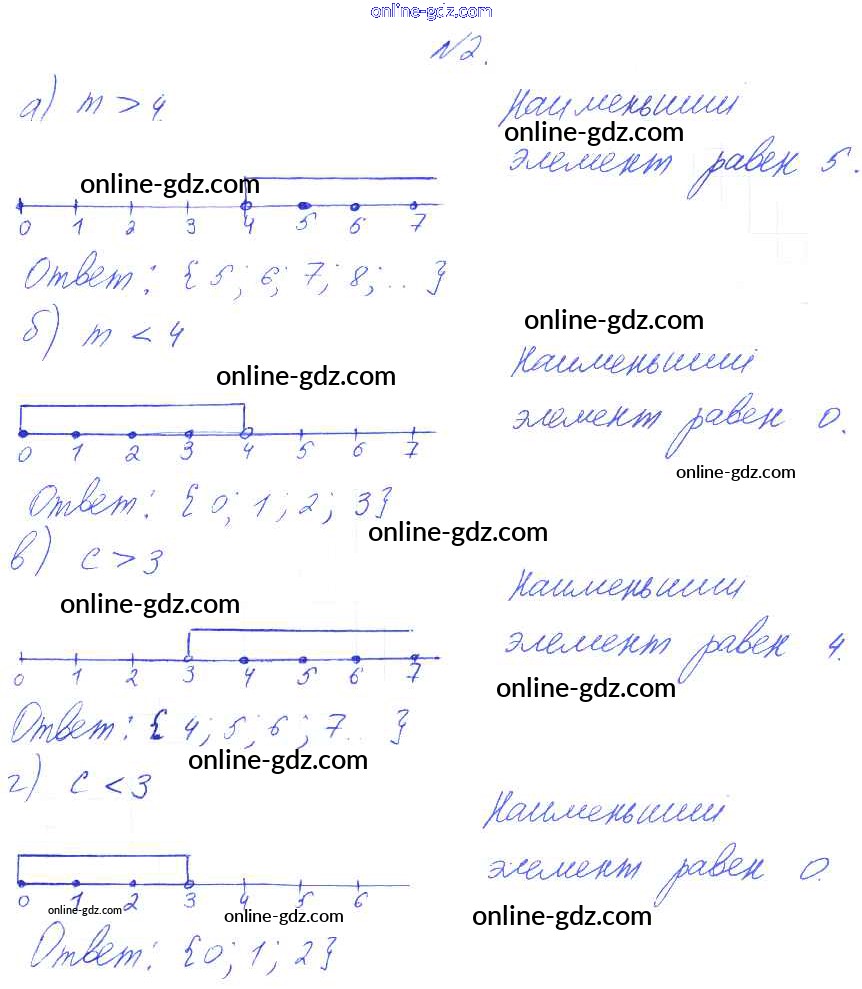 online-gdz.com
№2.
а) m > 4
Наименьший
online-gdz.com
элемент равен 5.
online-gdz.com
0 1 2 3 4 5 6 7
Ответ: {5; 6; 7; 8; ..}
б) m < 4
online-gdz.com
Наименьший
online-gdz.com
элемент равен 0.
0 1 2 3 4 5 6 7
online-gdz.com
Ответ: {0; 1; 2; 3}
online-gdz.com
в) c > 3
Наименьший
online-gdz.com
элемент равен 4.
0 1 2 3 4 5 6 7
online-gdz.com
Ответ: {4; 5; 6; 7... }
online-gdz.com
г) c < 3
Наименьший
элемент равен 0.
0 1 2 3 4 5 6
online-gdz.com
online-gdz.com
online-gdz.com
Ответ: {0; 1; 2}